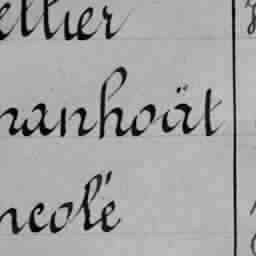 ellier
nanhoät
ncolé